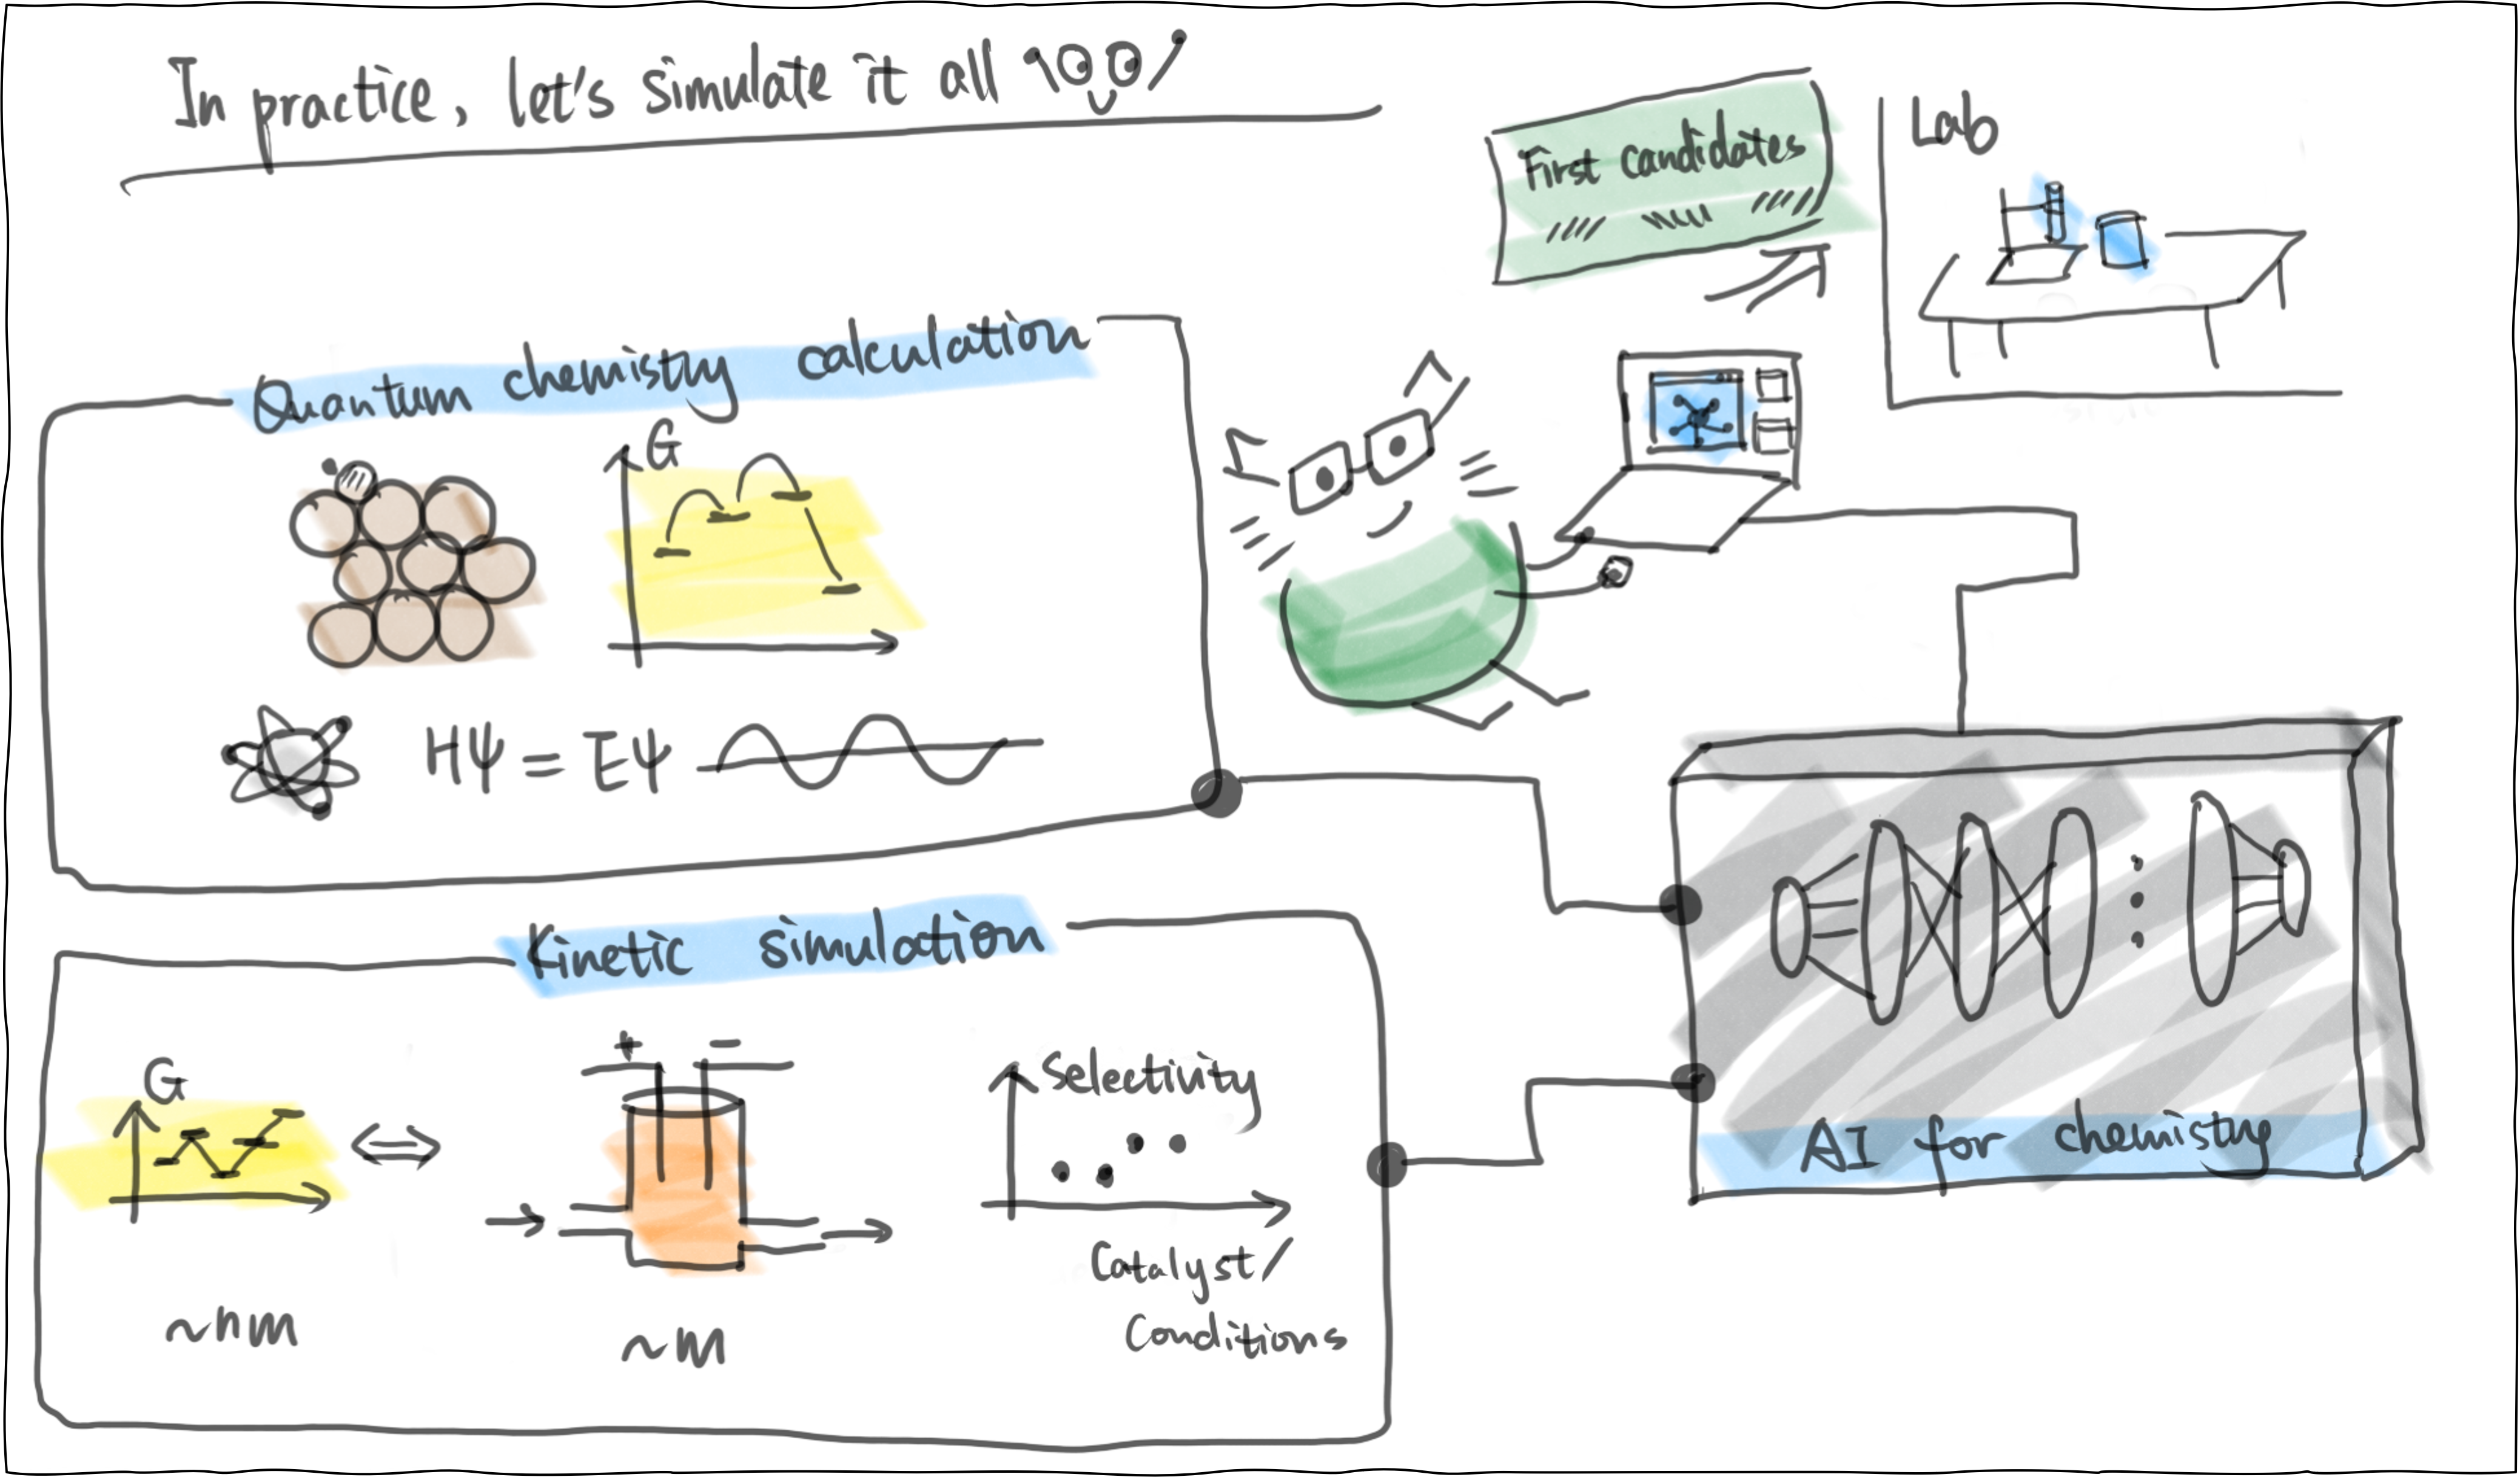 In practice, let's simulate it all
First candidates
Lab
Quantum chemistry calculation
G
Hψ = Eψ
Kinetic simulation
G
~nm
+ −
~m
Selectivity
Catalyst/
Conditions
AI for chemistry